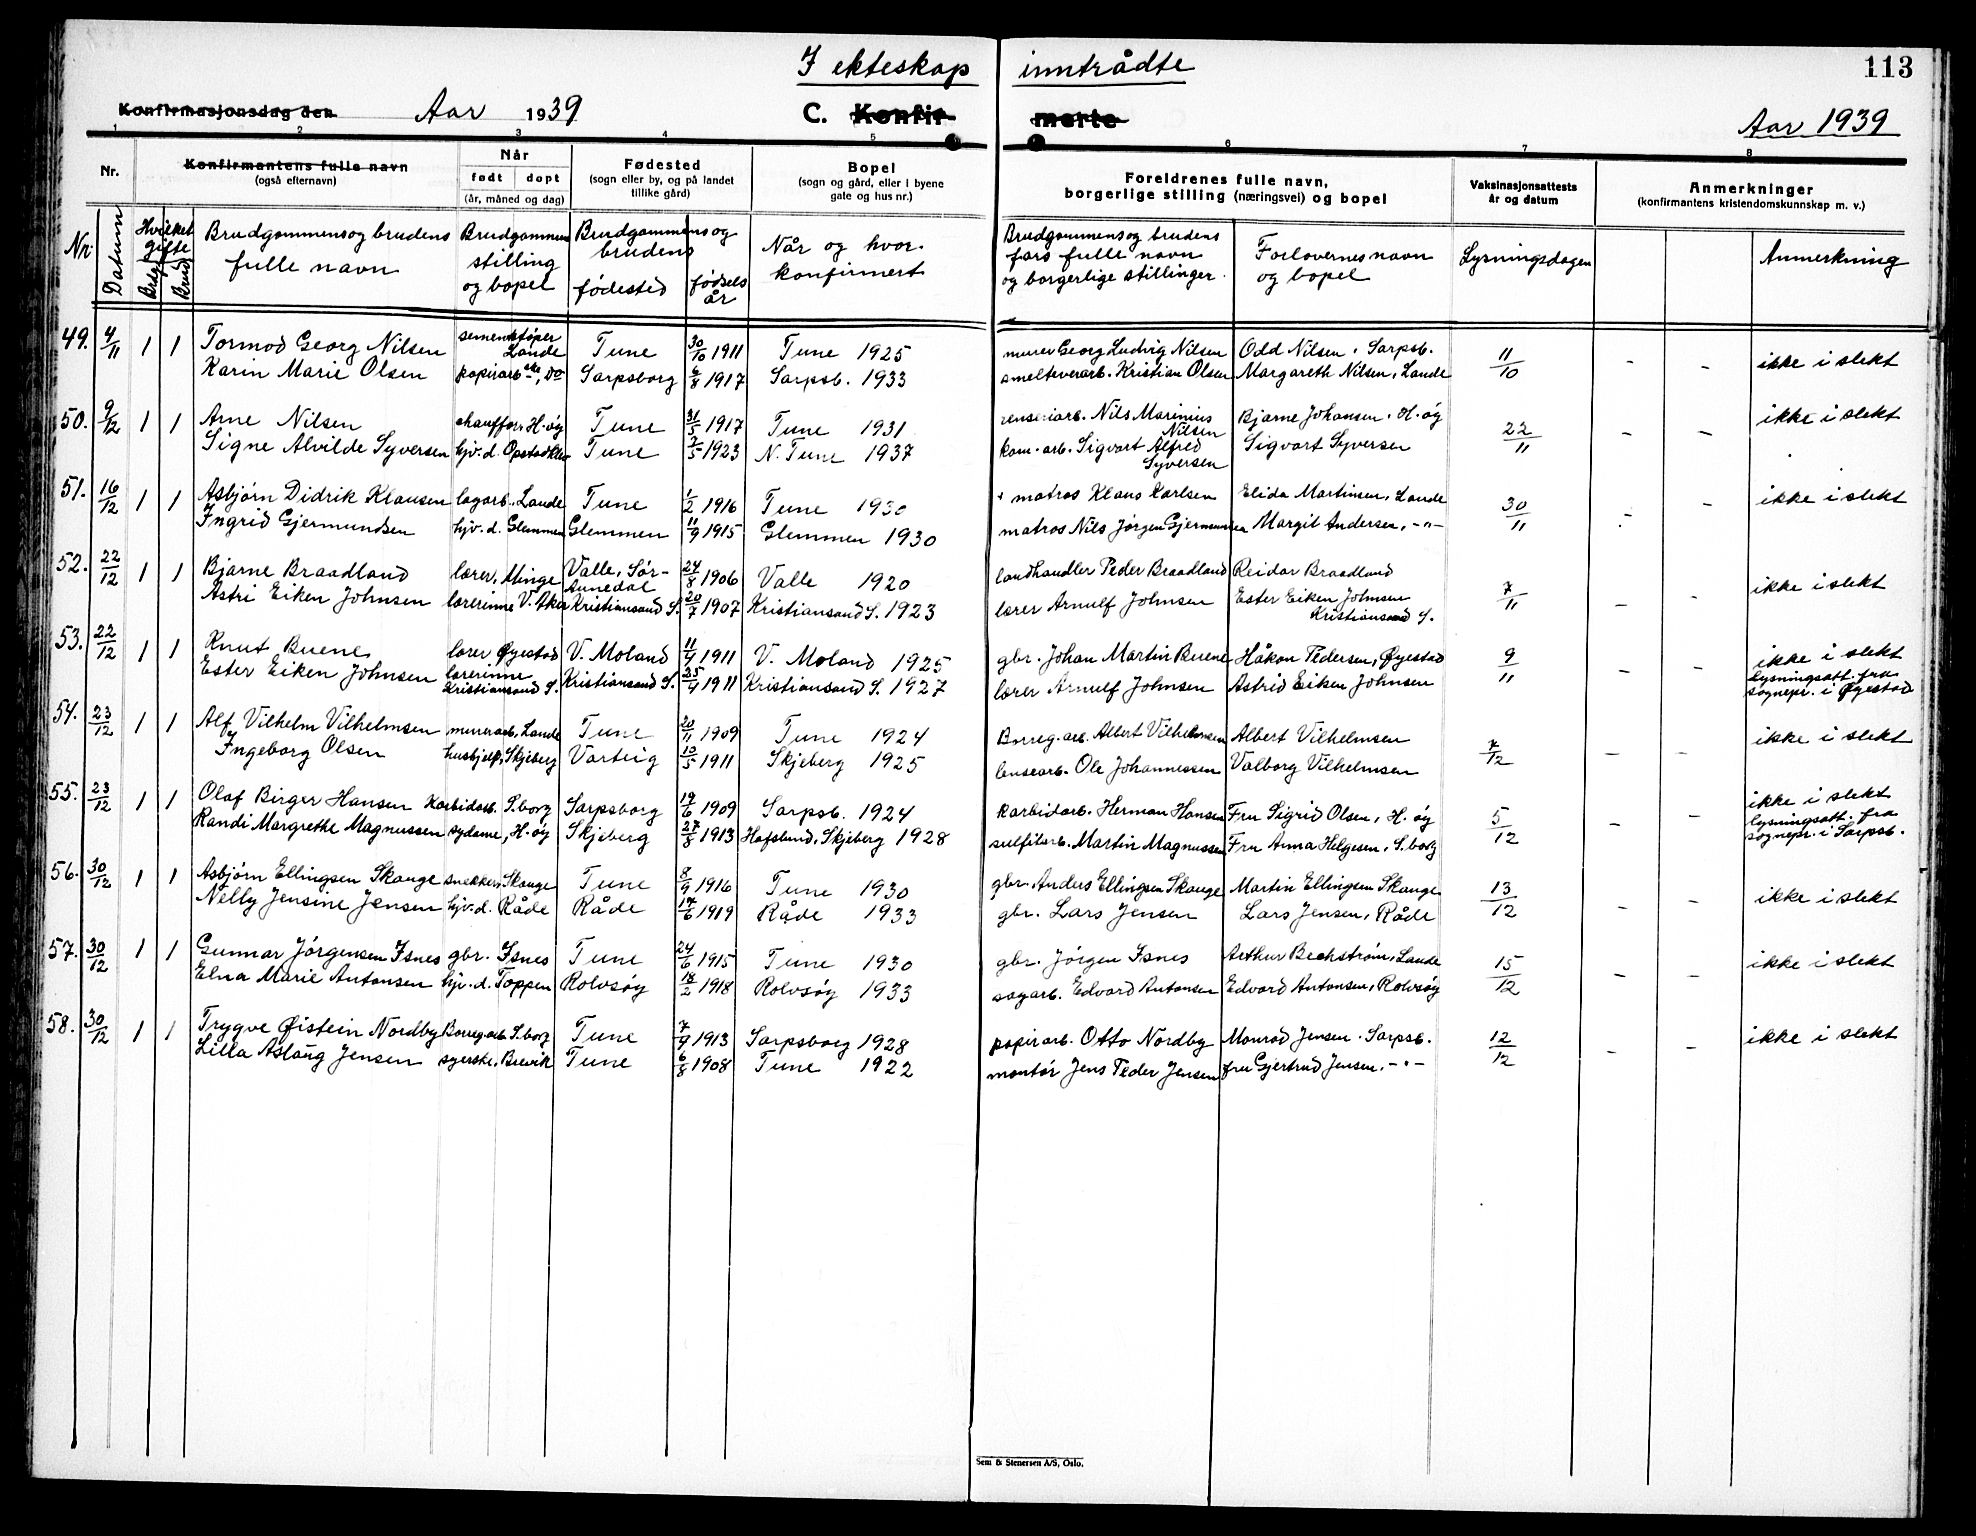 I ekteskap inntrådte
113
Konfirmasjonsdag den Aar 1939 C. Konfirmerte Aar 1939
1 2 3 4 5 6 7 8
Nr. Konfirmantens fulle navn (også efternavn) Når født døpt (år, måned og dag) Fødested (sogn eller by, og på landet tillike gård) Bopel (sogn og gård, eller i byene gate og hus nr.) Foreldrenes fulle navn, borgerlige stilling (næringsvei) og bopel Vaksinasjonsattests år og datum Anmerkninger (konfirmantens kristendomskunnskap m. v.)
Nr. Datum Hvilket gifte Brdg. Brud Brudgommens og brudens fulle navn Brudgommens stilling og bopel Brudgommens og brudens fødested fødselsår Når og hvor konfirmert Brudgommens og brudens fars fulle navn og borgerlige stillinger. Forlovernes navn og bopel Lysningsdagen Anmerkning
49. 4/11 1 1 Tormod Georg Nilsen sementstøper Lande Tune 30/10 1911 Tune 1925 murer Georg Ludvig Nilsen Odd Nilsen, Sarpsb. 11/10 - - ikke i slekt
Karin Marie Olsen papirarb.ske, Do Sarpsborg 6/8 1917 Sarpsb. 1933 smelteverarb. Kristian Olsen Margareth Nilsen, Lande
50. 9/12 1 1 Arne Nilsen chauffør, H.øy Tune 31/5 1917 Tune 1931 renseriarb. Nils Marinius Nilsen Bjarne Johansen, H.øy 22/11 - - ikke i slekt
Signe Alvilde Syversen hjv. d. Opstad Tune 7/5 1923 N. Tune 1937 kom. arb. Sigvart Alfred Syversen Sigvart Syversen
51. 16/12 1 1 Asbjørn Didrik Klausen lagarb. Lande Tune 1/2 1916 Tune 1930 matros Klaus Karlsen Elida Martinsen, Lande 30/11 - - ikke i slekt
Ingrid Gjermundsen hjv. d. Glemmen Glemmen 11/9 1915 Glemmen 1930 matros Nils Jørgen Gjermundsen Margit Andersen, -"-
52. 22/12 1 1 Bjarne Braadland lærer, Minge Valle, Sør-Audnedal 24/8 1906 Valle 1920 landhandler Peder Braadland Reidar Braadland 7/11 - - ikke i slekt
Astri Eiken Johnsen lærerinne V. Aker Kristiansand S. 20/7 1907 Kristiansand S. 1923 lærer Arnulf Johnsen Ester Eiken Johnsen Kristiansand S.
53. 22/12 1 1 Knut Buene lærer Øyestad V. Moland 11/4 1911 V. Moland 1925 gbr. Johan Martin Buene Håkon Pedersen, Øyestad 9/11 - - ikke i slekt
Ester Eiken Johnsen lærerinne Kristiansand S. Kristiansand S. 25/4 1911 Kristiansand S. 1927 lærer Arnulf Johnsen Astrid Eiken Johnsen lysningsatt. fra sognepr. i Øyestad
54. 23/12 1 1 Alf Vilhelm Vilhelmsen murerarb. Lande Tune 20/11 1909 Tune 1924 Borreg. arb. Albert Vilhelmsen Albert Vilhelmsen 7/12 - - ikke i slekt
Ingeborg Olsen husbjelp, Skjeberg Varteig 10/5 1911 Skjeberg 1925 lensearb. Ole Johannessen Valborg Vilhelmsen
55. 23/12 1 1 Olaf Birger Hansen karbidarb. S.borg Sarpsborg 19/6 1909 Sarpsb. 1924 karbidarb. Herman Hansen Fru Sigrid Olsen, H.øy 5/12 - - ikke i slekt
Randi Margrethe Magnussen sydame, H.øy Skjeberg 27/8 1913 Hafslund, Skjeberg 1928 sulfitarb. Martin Magnussen Fru Anna Helgesen, S.borg lysningsatt. fra sognepr. i Sarpsb.
56. 30/12 1 1 Asbjørn Ellingsen Skauge snekker, Skauge Tune 8/9 1916 Tune 1930 gbr. Anders Ellingsen Skauge Martin Ellingsen Skauge 13/12 - - ikke i slekt
Nelly Jensine Jensen hjv. d. Råde Råde 17/6 1919 Råde 1933 gbr. Lars Jensen Lars Jensen, Råde
57. 30/12 1 1 Gunnar Jørgensen Isnes gbr. Isnes Tune 24/6 1915 Tune 1930 gbr. Jørgen Isnes Arthur Bechstrøm, Lande 15/12 - - ikke i slekt
Elna Marie Antonsen hjv. d. Toppen Rolvsøy 18/2 1918 Rolvsøy 1933 sagarb. Edvard Antonsen Edvard Antonsen, Rolvsøy
58. 30/12 1 1 Trygve Øistein Nordby Borregarb. S.borg Tune 7/9 1913 Sarpsborg 1928 papirarb. Otto Nordby Monrad Jensen, Sarpsb. 12/12 - - ikke i slekt
Lilla Aslaug Jensen syerske, Brevik Tune 6/8 1908 Tune 1922 montør Jens Peder Jensen fru Gjertrud Jensen, -"-
Sem & Stenersen A/S, Oslo.